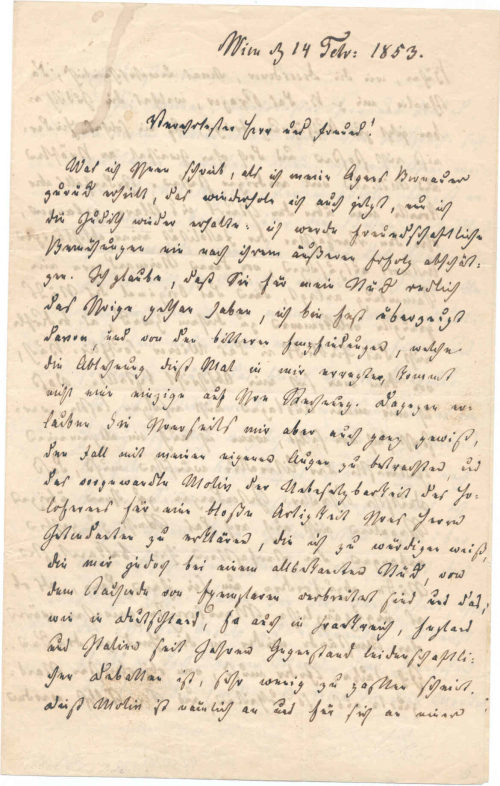 Wien d 14 Febr: 1853.
Verehrtester Herr und Freund!
Was ich Ihnen schrieb, als ich meine Agnes Bernauer
zurück erhielt, das wiederhole ich auch jetzt, wo ich
die Judith wieder erhalte: ich werde freundschaftliche
Bemühungen nie nach ihrem äußeren Erfolg abschät-
zen. Ich glaube, daß Sie für mein Stück redlich
das Ihrige gethan haben, ich bin fest überzeugt
davon, und von den bitteren Empfindungen, welche
die Ablehnung dieß Mal in mir erregte, kommt
nicht eine einzige auf Ihre Rechnung. Dagegen er-
lauben Sie Ihrerseits mir aber auch ganz gewiß,
den Fall mit meinen eigenen Augen zu betrachten und
das vorgewandte Motiv der Unbesetzbarkeit des Ho-
lofernes für eine bloße Artigkeit Ihres Herrn
Intendanten zu erklären, die ich zu würdigen weiß,
die mir jedoch bei einem allbekannten Stück, von
dem Tausende von Exemplaren verbreitet sind und das,
wie in Deutschland, so auch in Frankreich, England
und Italien seit Jahren Gegenstand leidenschaftli-
cher Debatten ist, sehr wenig zu passen scheint.
Dieß Motiv ist nämlich an und für sich an einer